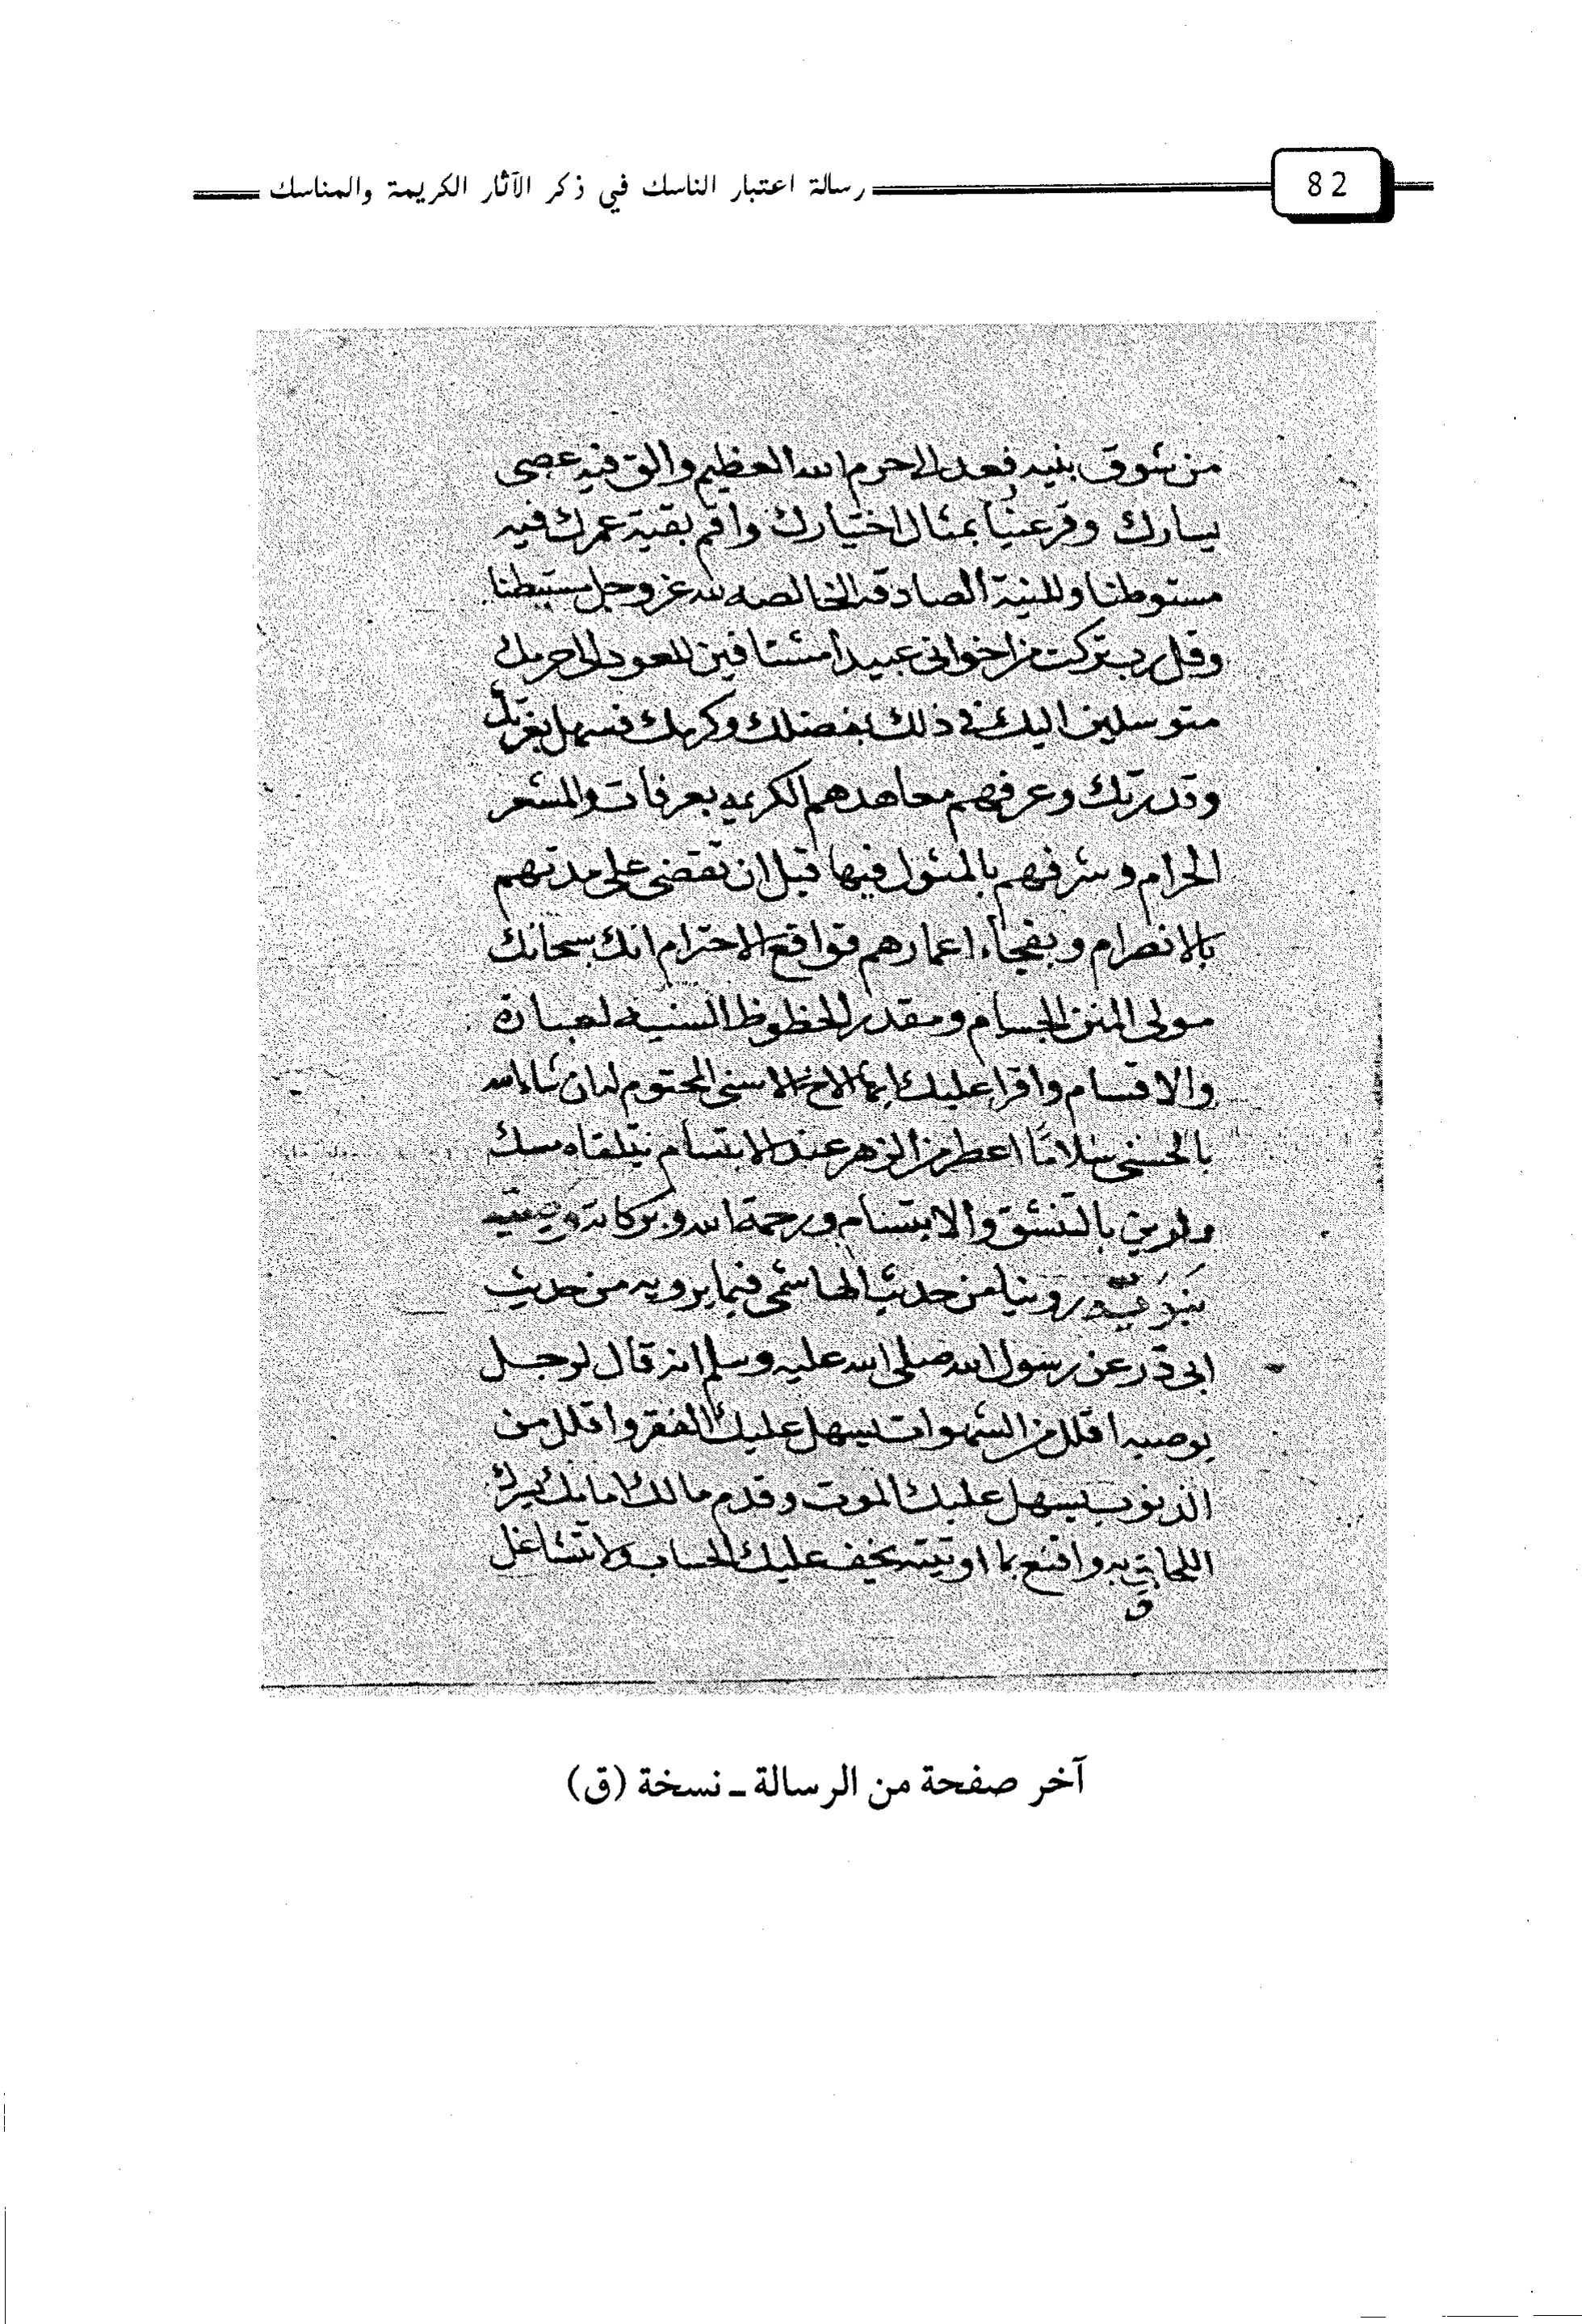 82
رسالة اعتبار الناسك في ذكر الآثار الكريمة والمناسك
من شوق بنيه فعد الى حرم الله العظيم والق فيه عصى
يسارك وقر عيناً بمثال اختيارك واقم بقية عمرك فيه
مستوطنا وللنية الصادقه الخالصه لله عز وجل مستبطنا
وقل رب تركت من اخوانى عبيداً مشتاقين للعود الى حرمك
متوسلين اليك فى ذلك بفضلك وكرمك فسهل بعزتك
وقدرتك وعرفهم معاهدهم الكريمه بعرفات والمشعر
الحرام وشرفهم بالمثول فيها قبل ان تقضى على مدتهم
بالانصرام وبفجاء اعمارهم قواقع الاحترام انك سبحانك
مولى المنن الجسام ومقدر الحظوظ السنيه لعبادة
والاقسام واقرا عليك ايها الاخ الاسنى المحتوم لمان شا الله
بالحسنى سلامًا اعطر من الزهر عند الابتسام يتلقاه مسك
دارين بالتنشق والابتسام ورحمة الله وبركاته وصيه
نبويه روينا من حديث الهاشمى فيما يرويه من حديث
ابى ذر عن رسول الله صلى الله عليه وسلم انه قال لرجل
يوصيه اقلل من الشهوات يسهل عليك الفقر واقلل من
الذنوب يسهل عليك الموت وقدم مالك امامك يسرك
اللحاق به واقنع بما اوتيته يخف عليك الحساب ولا تتشاغل
ق
آخر صفحة من الرسالة ـ نسخة (ق)